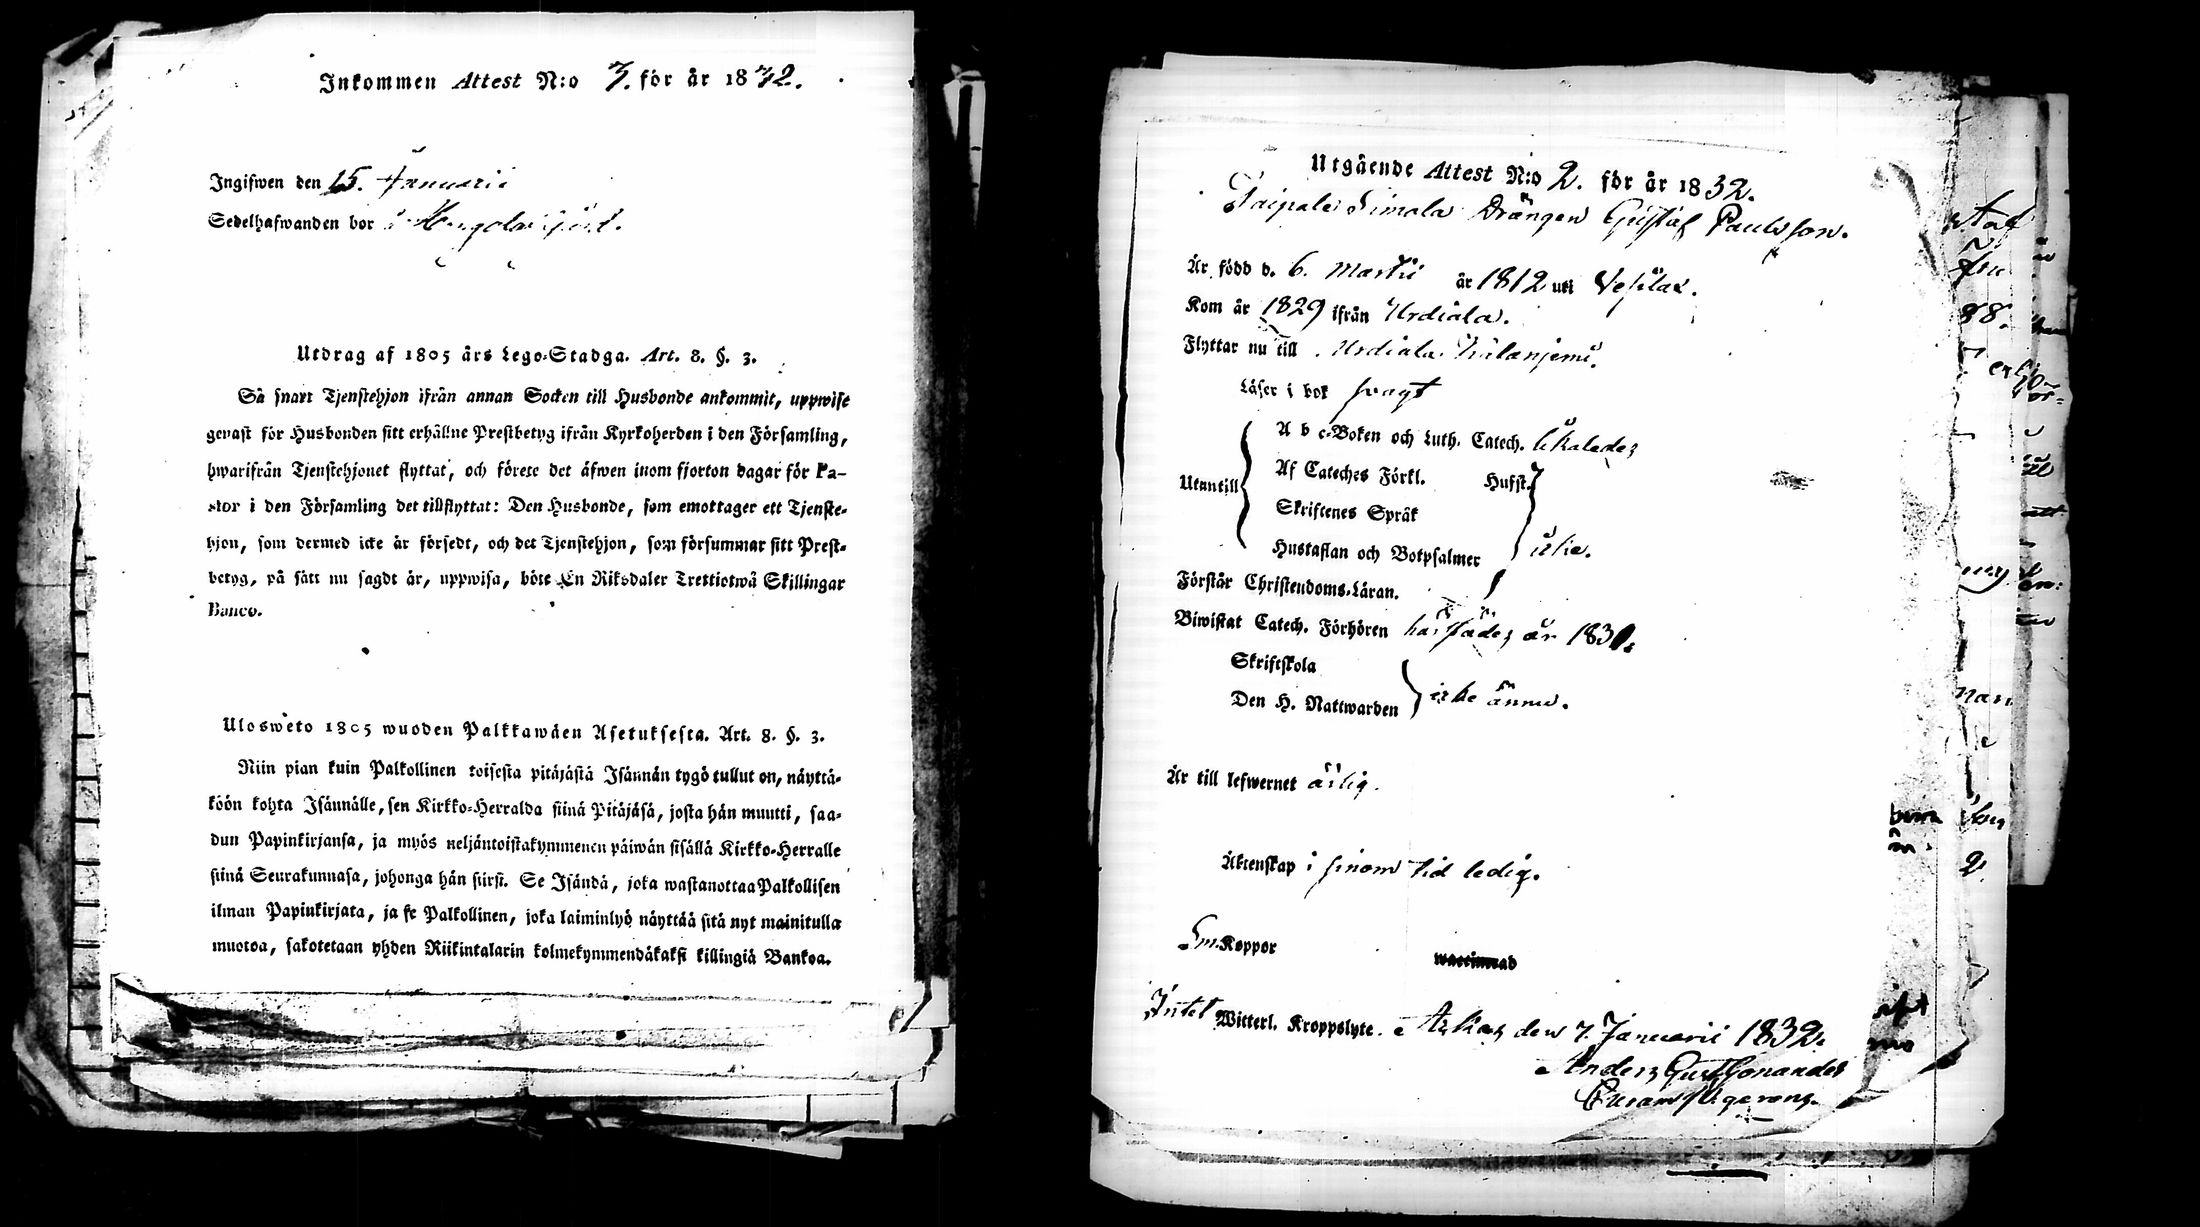 Inkommen Attest N:o 3. för år 1832.
Ingifwen den 15. Januarii
Sedelhafwanden bor i
Utdrag af 1805 års Lego-Stadga. Art. 8. §. 3.
Så snart Tjenstehjon ifrån annan Socken till Husbonde ankommit, uppwise
genast för Husbonden sitt erhållne Prestbetyg ifrån Kyrkoherden i den Församling,
hwarifrån Tjenstehjonet flyttat, och förete det äfwen inom fjorton dagar för Pa-
stor i den Församling det tillflyttat: Den Husbonde, som emottager ett Tjenste-
hjon, som dermed icke är försedt, och det Tjenstehjon, som försummar sitt Prest-
betyg, på sätt nu sagdt är, uppwisa, böte En Riksdaler Trettiotwå Skillingar
Banco.
Ulosweto 1805 wuoden Palkkawäen Asetuksesta. Art. 8. §. 3.
Niin pian kuin Palkollinen toisesta pitäjästä Isännän tygö tullut on, näyttä-
köön kohta Isännälle, sen Kirkko-Herralda siinä Pitäjäsä, josta hän muutti, saa-
dun Papinkirjansa, ja myös neljäntoistakymmenen päiwän sisällä Kirkko-Herralle
siinä Seurakunnasa, johonga hän siirsi. Se Isändä, joka wastanottaa Palkollisen
ilman Papinkirjata, ja se Palkollinen, joka laiminlyö näyttää sitä nyt mainitulla
muotoa, sakotetaan yhden Riikintalarin kolmekymmendäkaksi killingiä Bankoa.
Utgående Attest N:o 2. för år 1832.
Taipale Simola Drängen Gustaf Paulsson.
Är född d. 6. Martii år 1812 uti Vesilax.
Kom år 1829 ifrån Urdiala.
Flyttar nu till Urdiala
Läser i bok svagt
Utantill
A b c-Boken och Luth. Catech.
Af Cateches Förkl. Husf.
Skriftenes Språk
Hustaflan och Botpsalmer icke.
Förstår Christendoms-Läran.
Biwistat Catech. Förhören härstädes år 1831.
Skriftskola
Den H. Nattwarden icke ännu.
Är till lefwernet ärlig.
Äktenskap i sinom tid ledig.
Koppor
Intet Witterl. Kroppslyte. Akkas den 7. Januarii 1832.
Anders Gust